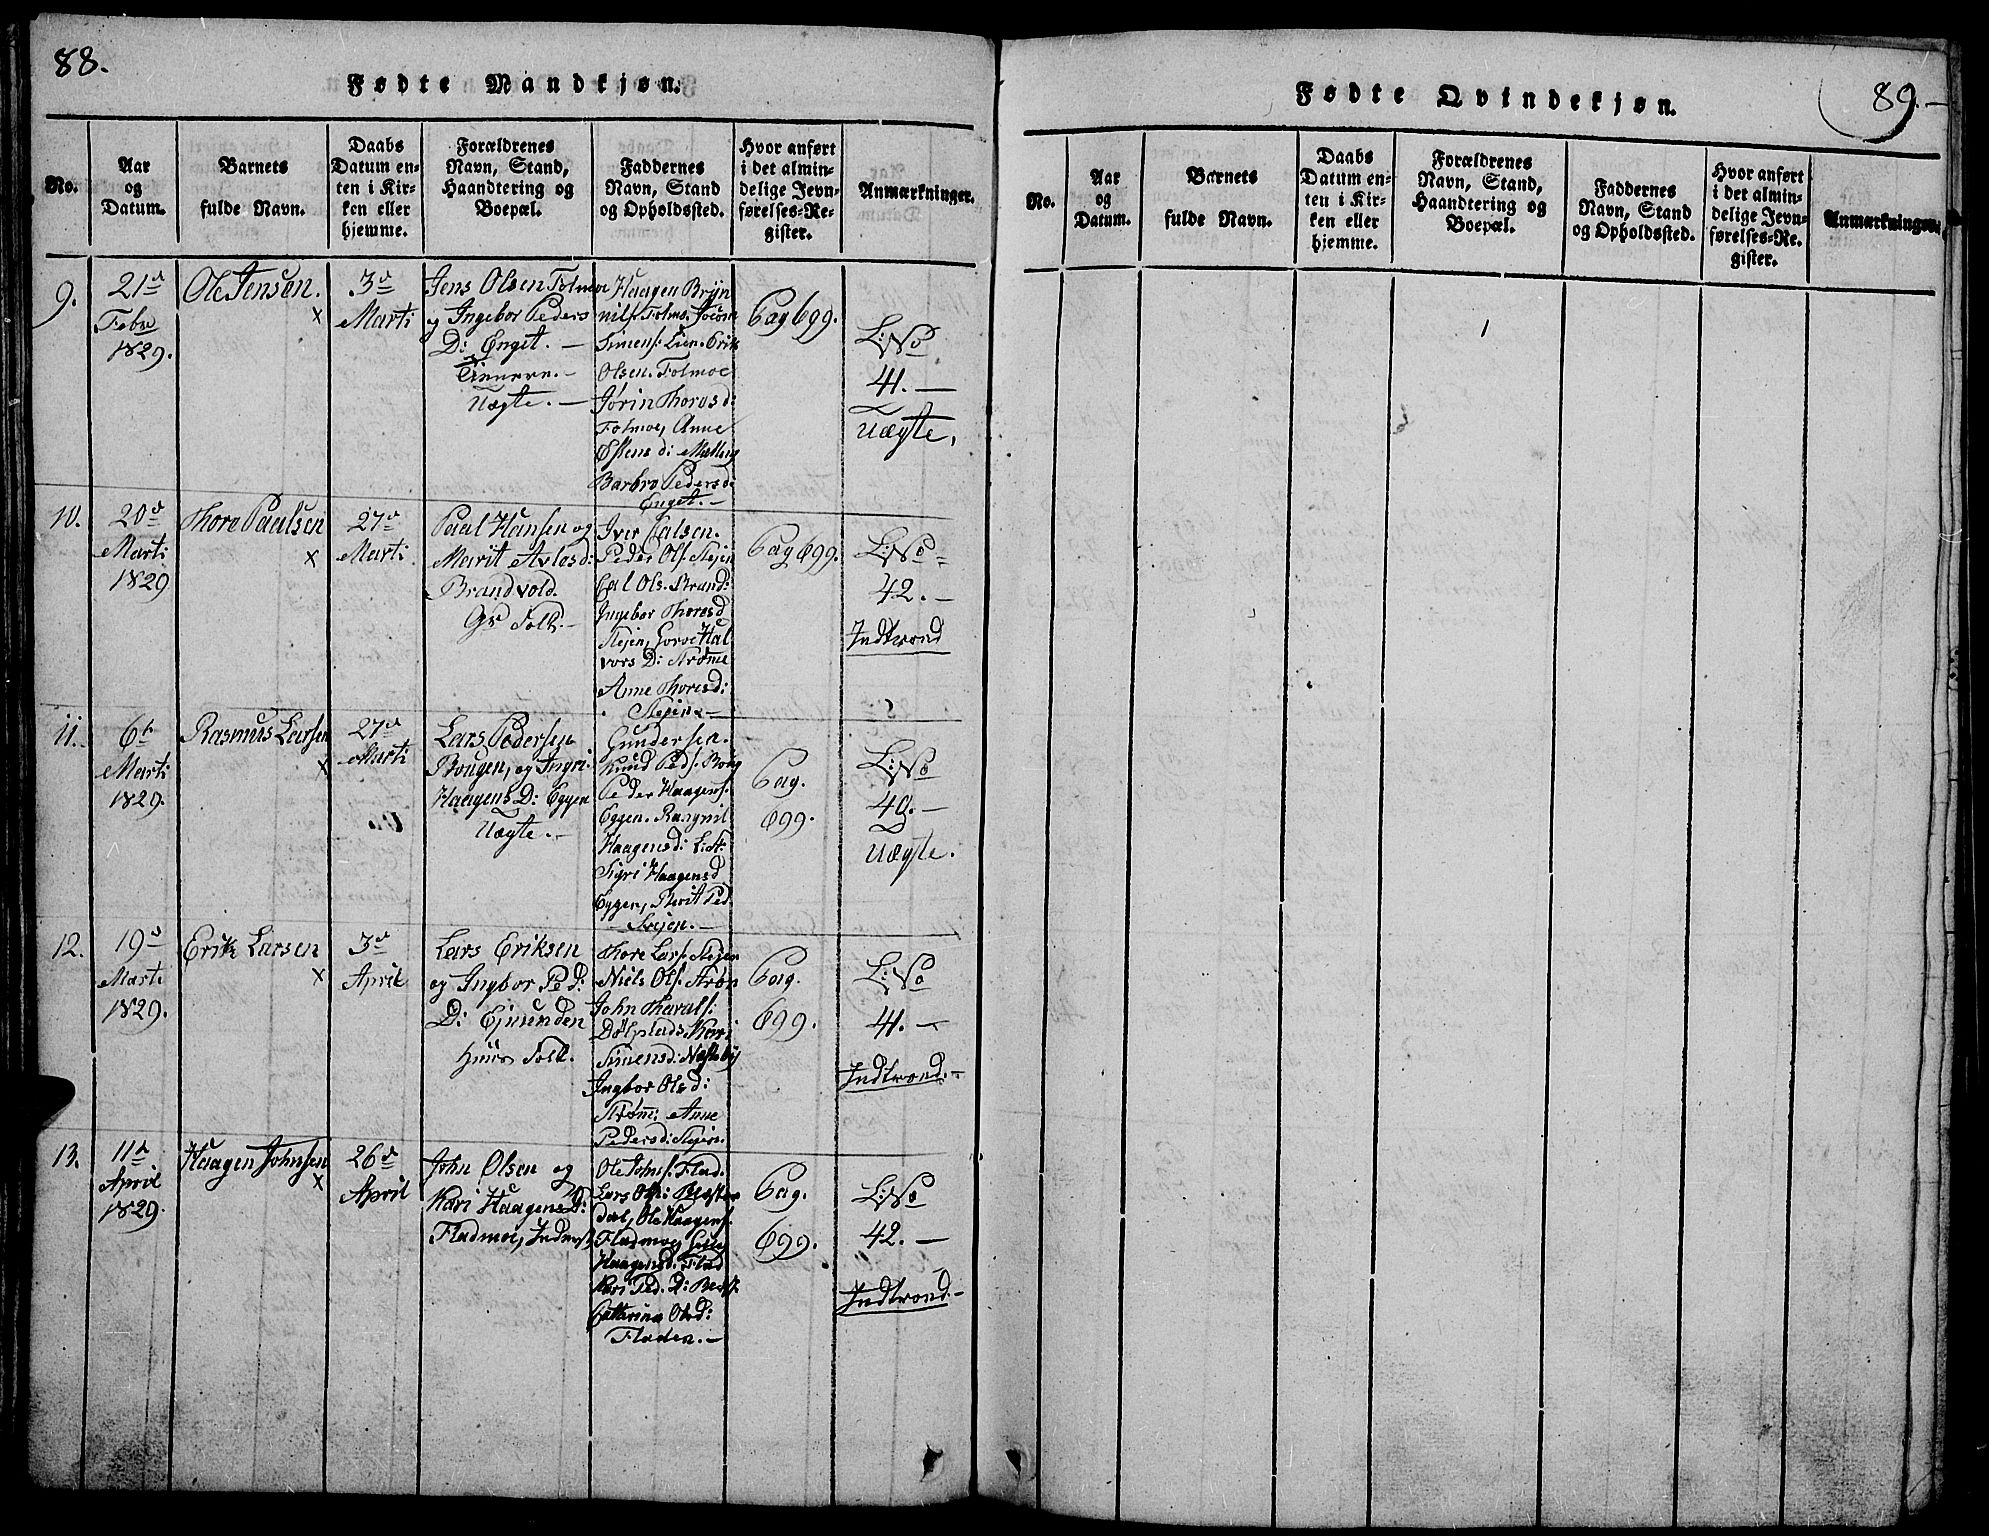 88.
Fødte Mandkjøn.
No.
Aar
og
Datum.
Barnets
fulde Navn.
Daabs
Datum en-
ten i Kir-
ken eller
hjemme.
Forældrenes
Navn, Stand,
Haandtering og
Boepæl.
Faddernes
Navn, Stand
og Opholdssted.
Hvor anført
i det almin-
delige Jevn-
førelses-Re-
gister.
Anmærkninger.
9.
21d
Febr
1829.
Ole Jensen.
x
3d
Marti
Jens Olsen Folmoe
og Ingebor Peders
D: Enget. —
Uægte. —
Haagen Bryn
Simens: Lien. Erik
Olsen. Folmoe
Jörin Thoresd:
Folmoe, Anne
Østens d:
Barbro Pedersd:
Enget. —
Pag 699.
L: No
41. —
Uægte.
10.
20d
Marti
1829
Thore Paalsen
x
27d
Marti
Paal Hansen og
Marit
Brandvold.
Gr Folk. —
Iver
Peder Ols: Stejen
Ols. Brand:
Ingebor Thoresd
Stejen, Hal
vors D: Strømme
Anne Thoresd:
Stejen. —
Pag 699.
L: No
42. —
Indtrond
11.
6t
Marti
1829.
Rasmus Larsen
x
27d
Marti
Lars Pedersen
Bougen, og Ingri
Haagens D: Eggen
Uægte. —
Gundersen.
Knud Peds: Boug
Peder Haagens:
Eggen. Rangnil
Haagensd:
Sigri Haagensd
Eggen, Marit Ped
Stejen. —
Pag.
699.
L: No
40. —
Uægte.
12.
19d
Marti
1829.
Erik Larsen
x
3d
April
Lars Eriksen
og Ingbor Ped:
D: Ejmunden
Huus Folk.
Thore Lars: Stejen
Niels Ols: Strøm
John
Kari
Simensd:
Ingbor Olsd:
Strøm: Anne
Pedersd: Stejen.
Pag.
699.
L: No
41. —
Indtrond. —
13.
11d
April
1829.
Haagen Johnsen
x
26d
April
John Olsen og
Kari Haagens D:
Fladmoe,
Ole Johns: Flad.
Lars Ols:
dal, Ole Haagens:
Fladmoe,
Haagensd. Flad
Kari Ped. D:
Catherina Olsd:
Fladen. —
Pag.
699.
L: No
42. —
Indtrond. —
89.
Fødte Qvindekjøn.
No.
Aar
og
Datum.
Barnets
fulde Navn.
Daabs
Datum en-
ten i Kir-
ken eller
hjemme.
Forældrenes
Navn, Stand,
Haandtering og
Boepæl.
Faddernes
Navn, Stand
og Opholdssted.
Hvor anført
i det almin-
delige Jevn-
førelses-Re-
gister.
Anmærkninger.